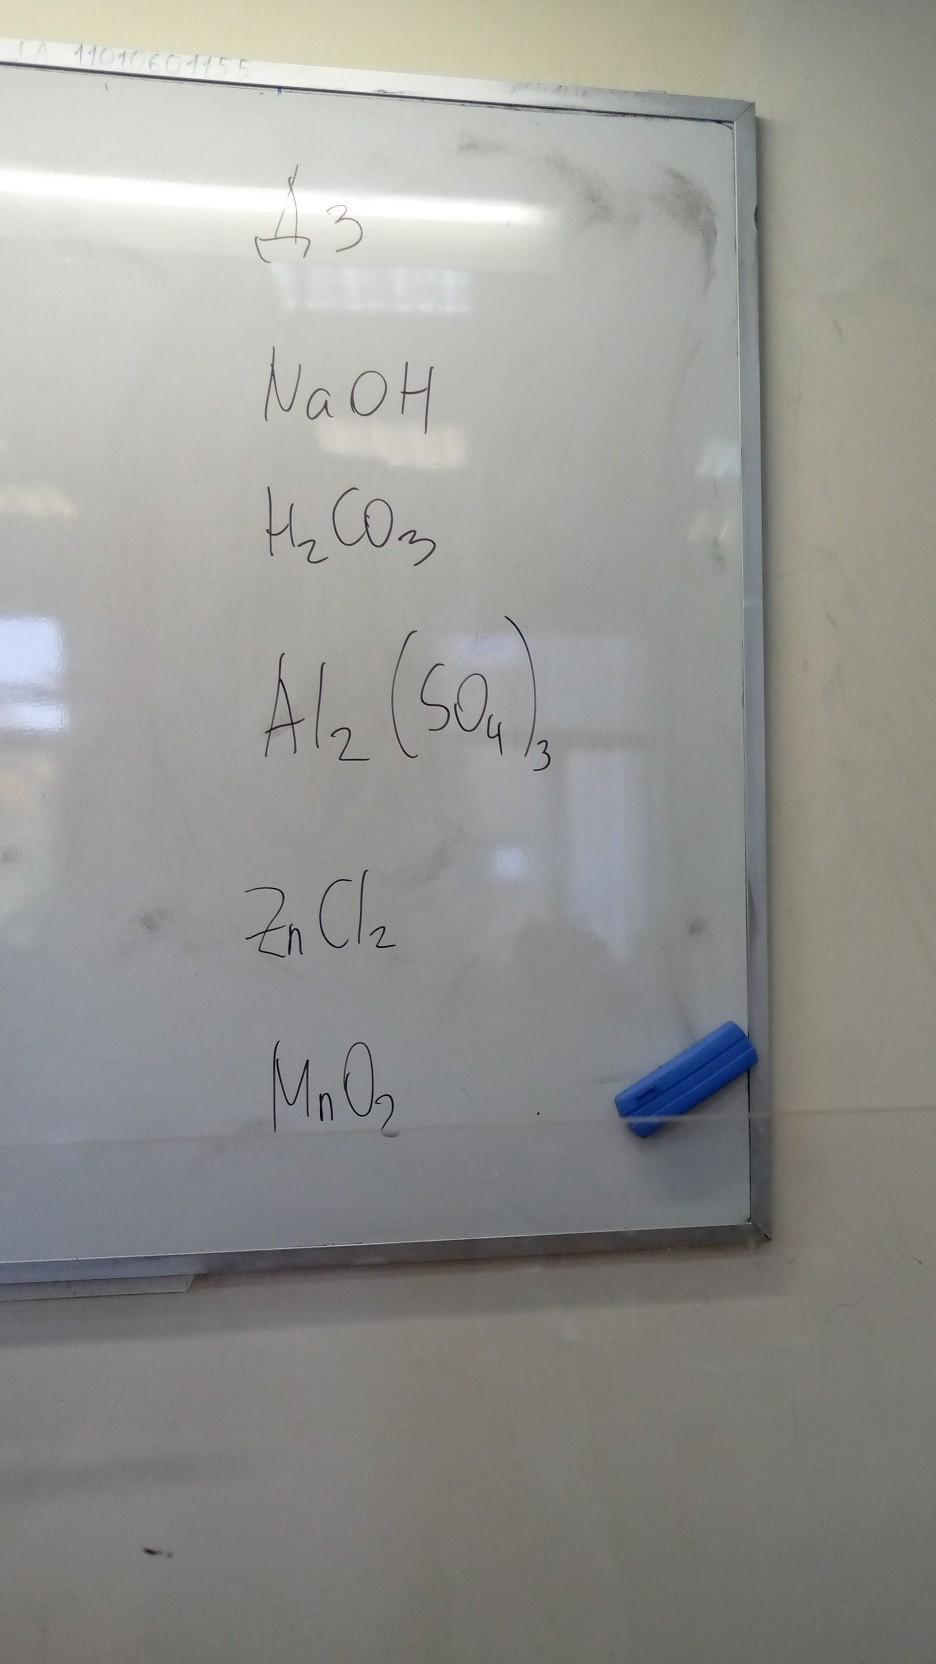 11010601155
ДЗ
NaOH
H₂CO₃
Al₂(SO₄)₃
ZnCl₂
MnO₂